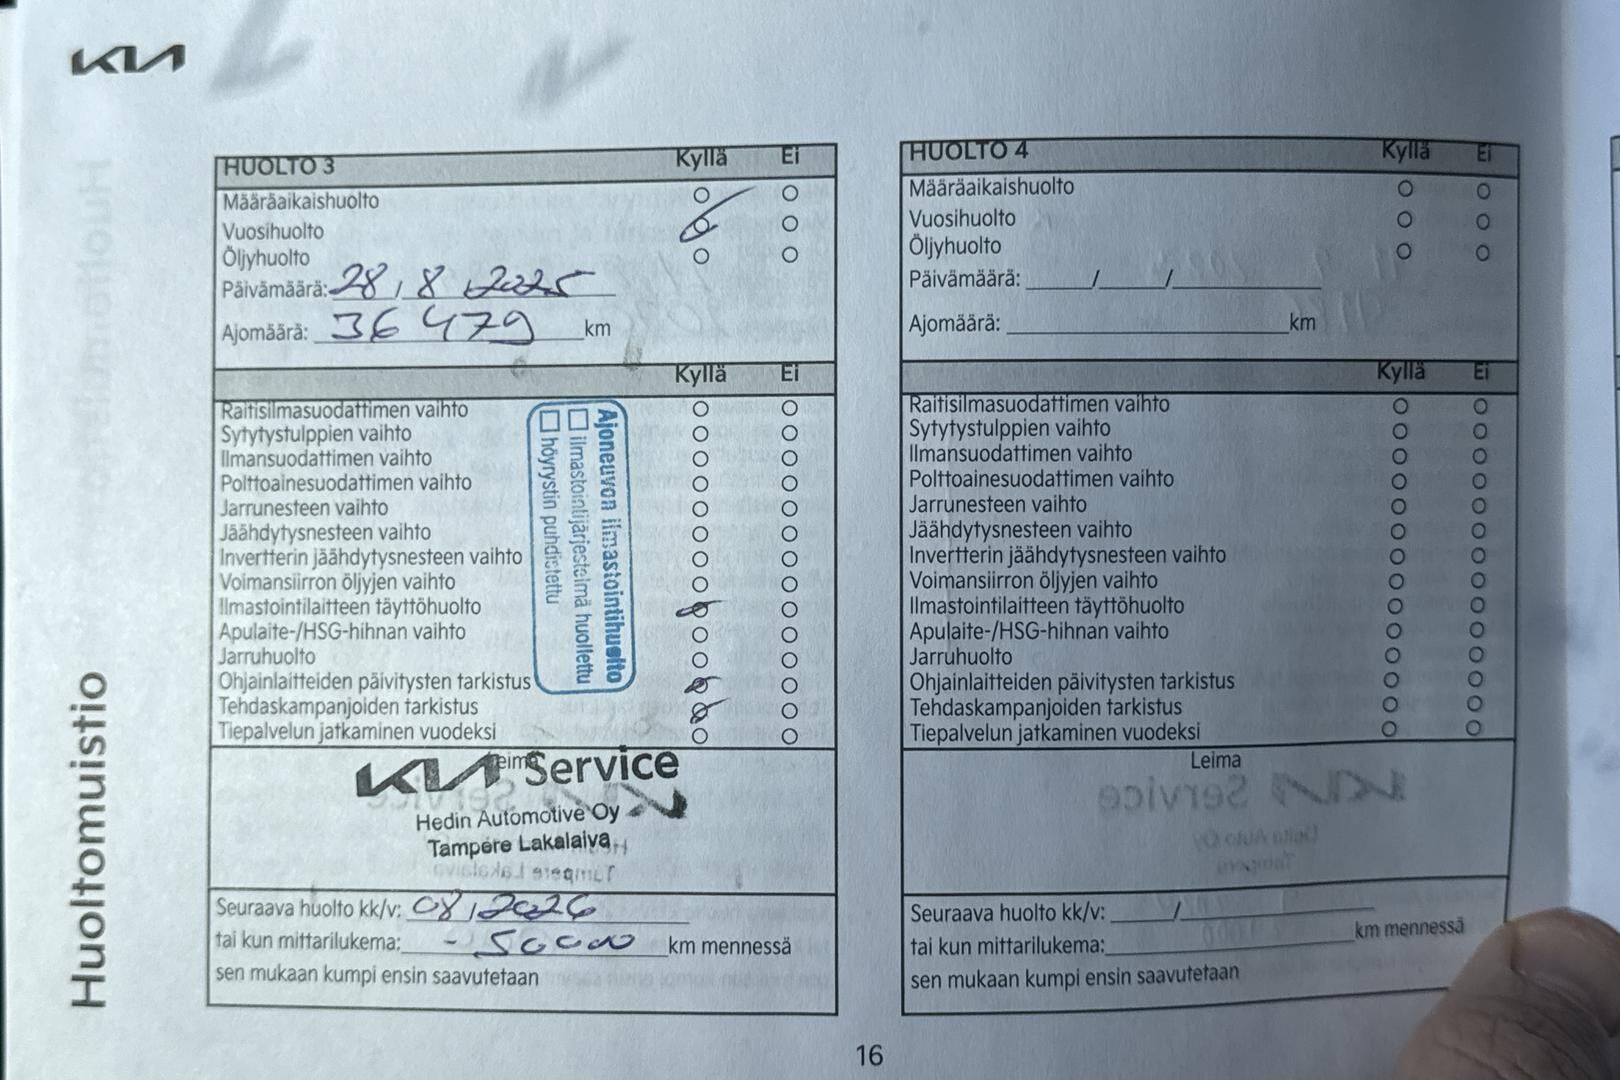 KIA
Huoltomuistio
HUOLTO 3 Kyllä Ei
Määräaikaishuolto
Vuosihuolto
Öljyhuolto
Päivämäärä: 28 / 8 / 2025
Ajomäärä: 36 479 km
Kyllä Ei
Raitisilmasuodattimen vaihto
Sytytystulppien vaihto
Ilmansuodattimen vaihto
Polttoainesuodattimen vaihto
Jarrunesteen vaihto
Jäähdytysnesteen vaihto
Invertterin jäähdytysnesteen vaihto
Voimansiirron öljyjen vaihto
Ilmastointilaitteen täyttöhuolto
Apulaite-/HSG-hihnan vaihto
Jarruhuolto
Ohjainlaitteiden päivitysten tarkistus
Tehdaskampanjoiden tarkistus
Tiepalvelun jatkaminen vuodeksi
Ajoneuvon ilmastointihuolto
ilmastointijärjestelmä huollettu
höyrystin puhdistettu
Leima
KIA Service
Hedin Automotive Oy
Tampere Lakalaiva
Seuraava huolto kk/v: 08 / 2026
tai kun mittarilukema: - 50000 km mennessä
sen mukaan kumpi ensin saavutetaan
HUOLTO 4 Kyllä Ei
Määräaikaishuolto
Vuosihuolto
Öljyhuolto
Päivämäärä: / /
Ajomäärä: km
Kyllä Ei
Raitisilmasuodattimen vaihto
Sytytystulppien vaihto
Ilmansuodattimen vaihto
Polttoainesuodattimen vaihto
Jarrunesteen vaihto
Jäähdytysnesteen vaihto
Invertterin jäähdytysnesteen vaihto
Voimansiirron öljyjen vaihto
Ilmastointilaitteen täyttöhuolto
Apulaite-/HSG-hihnan vaihto
Jarruhuolto
Ohjainlaitteiden päivitysten tarkistus
Tehdaskampanjoiden tarkistus
Tiepalvelun jatkaminen vuodeksi
Leima
Seuraava huolto kk/v: /
tai kun mittarilukema: km mennessä
sen mukaan kumpi ensin saavutetaan
16